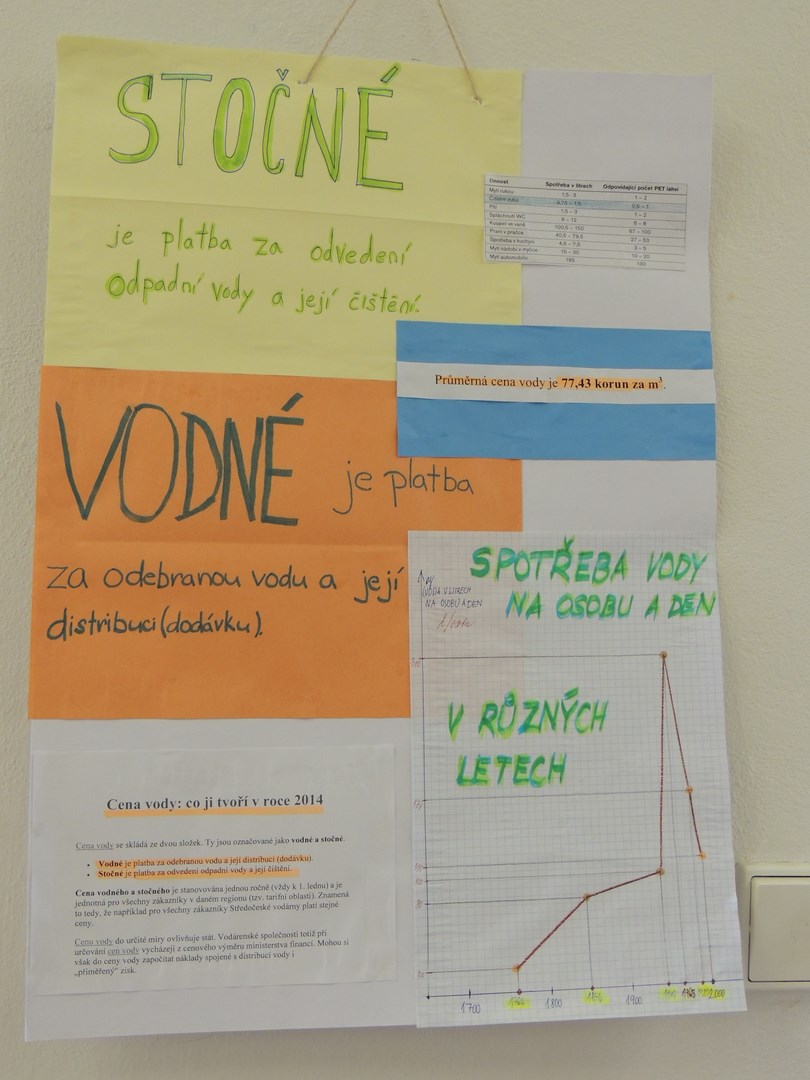 STOČNÉ
je platba za odvedení
odpadní vody a její čištění.
Činnost Spotřeba v litrech Odpovídající počet PET lahví
Mytí rukou 1,5–3 1 – 2
Čištění zubů 0,75 – 1,5 0,5 – 1
Pití 1,5 – 3 1 – 2
Spláchnutí WC 9 – 12 6 – 8
Koupel ve vaně 100,5 – 150 67 – 100
Praní v pračce 40,5 – 79,5 27 – 53
Spotřeba v kuchyni 4,5 – 7,5 3 – 5
Mytí nádobí v myčce 15 – 30 10 – 20
Mytí automobilu
Průměrná cena vody je 77,43 korun za m³.
VODNÉ je platba
za odebranou vodu a její
distribuci (dodávku).
SPOTŘEBA VODY
NA OSOBU A DEN
VODA V LITRECH
NA OSOBU A DEN
V RŮZNÝCH
LETECH
1700 1800 1850 1900 2000
Cena vody: co ji tvoří v roce 2014
Cena vody se skládá ze dvou složek. Ty jsou označované jako vodné a stočné.
• Vodné je platba za odebranou vodu a její distribuci (dodávku).
• Stočné je platba za odvedení odpadní vody a její čištění.
Cena vodného a stočného je stanovována jednou ročně (vždy k 1. lednu) a je
jednotná pro všechny zákazníky v daném regionu (tzv. tarifní oblasti). Znamená
to tedy, že například pro všechny zákazníky Středočeské vodárny platí stejné
ceny.
Cenu vody do určité míry ovlivňuje stát. Vodárenské společnosti totiž při
určování cen vody vycházejí z cenového výměru ministerstva financí. Mohou si
však do ceny vody započítat náklady spojené s distribucí vody i
„přiměřený" zisk.